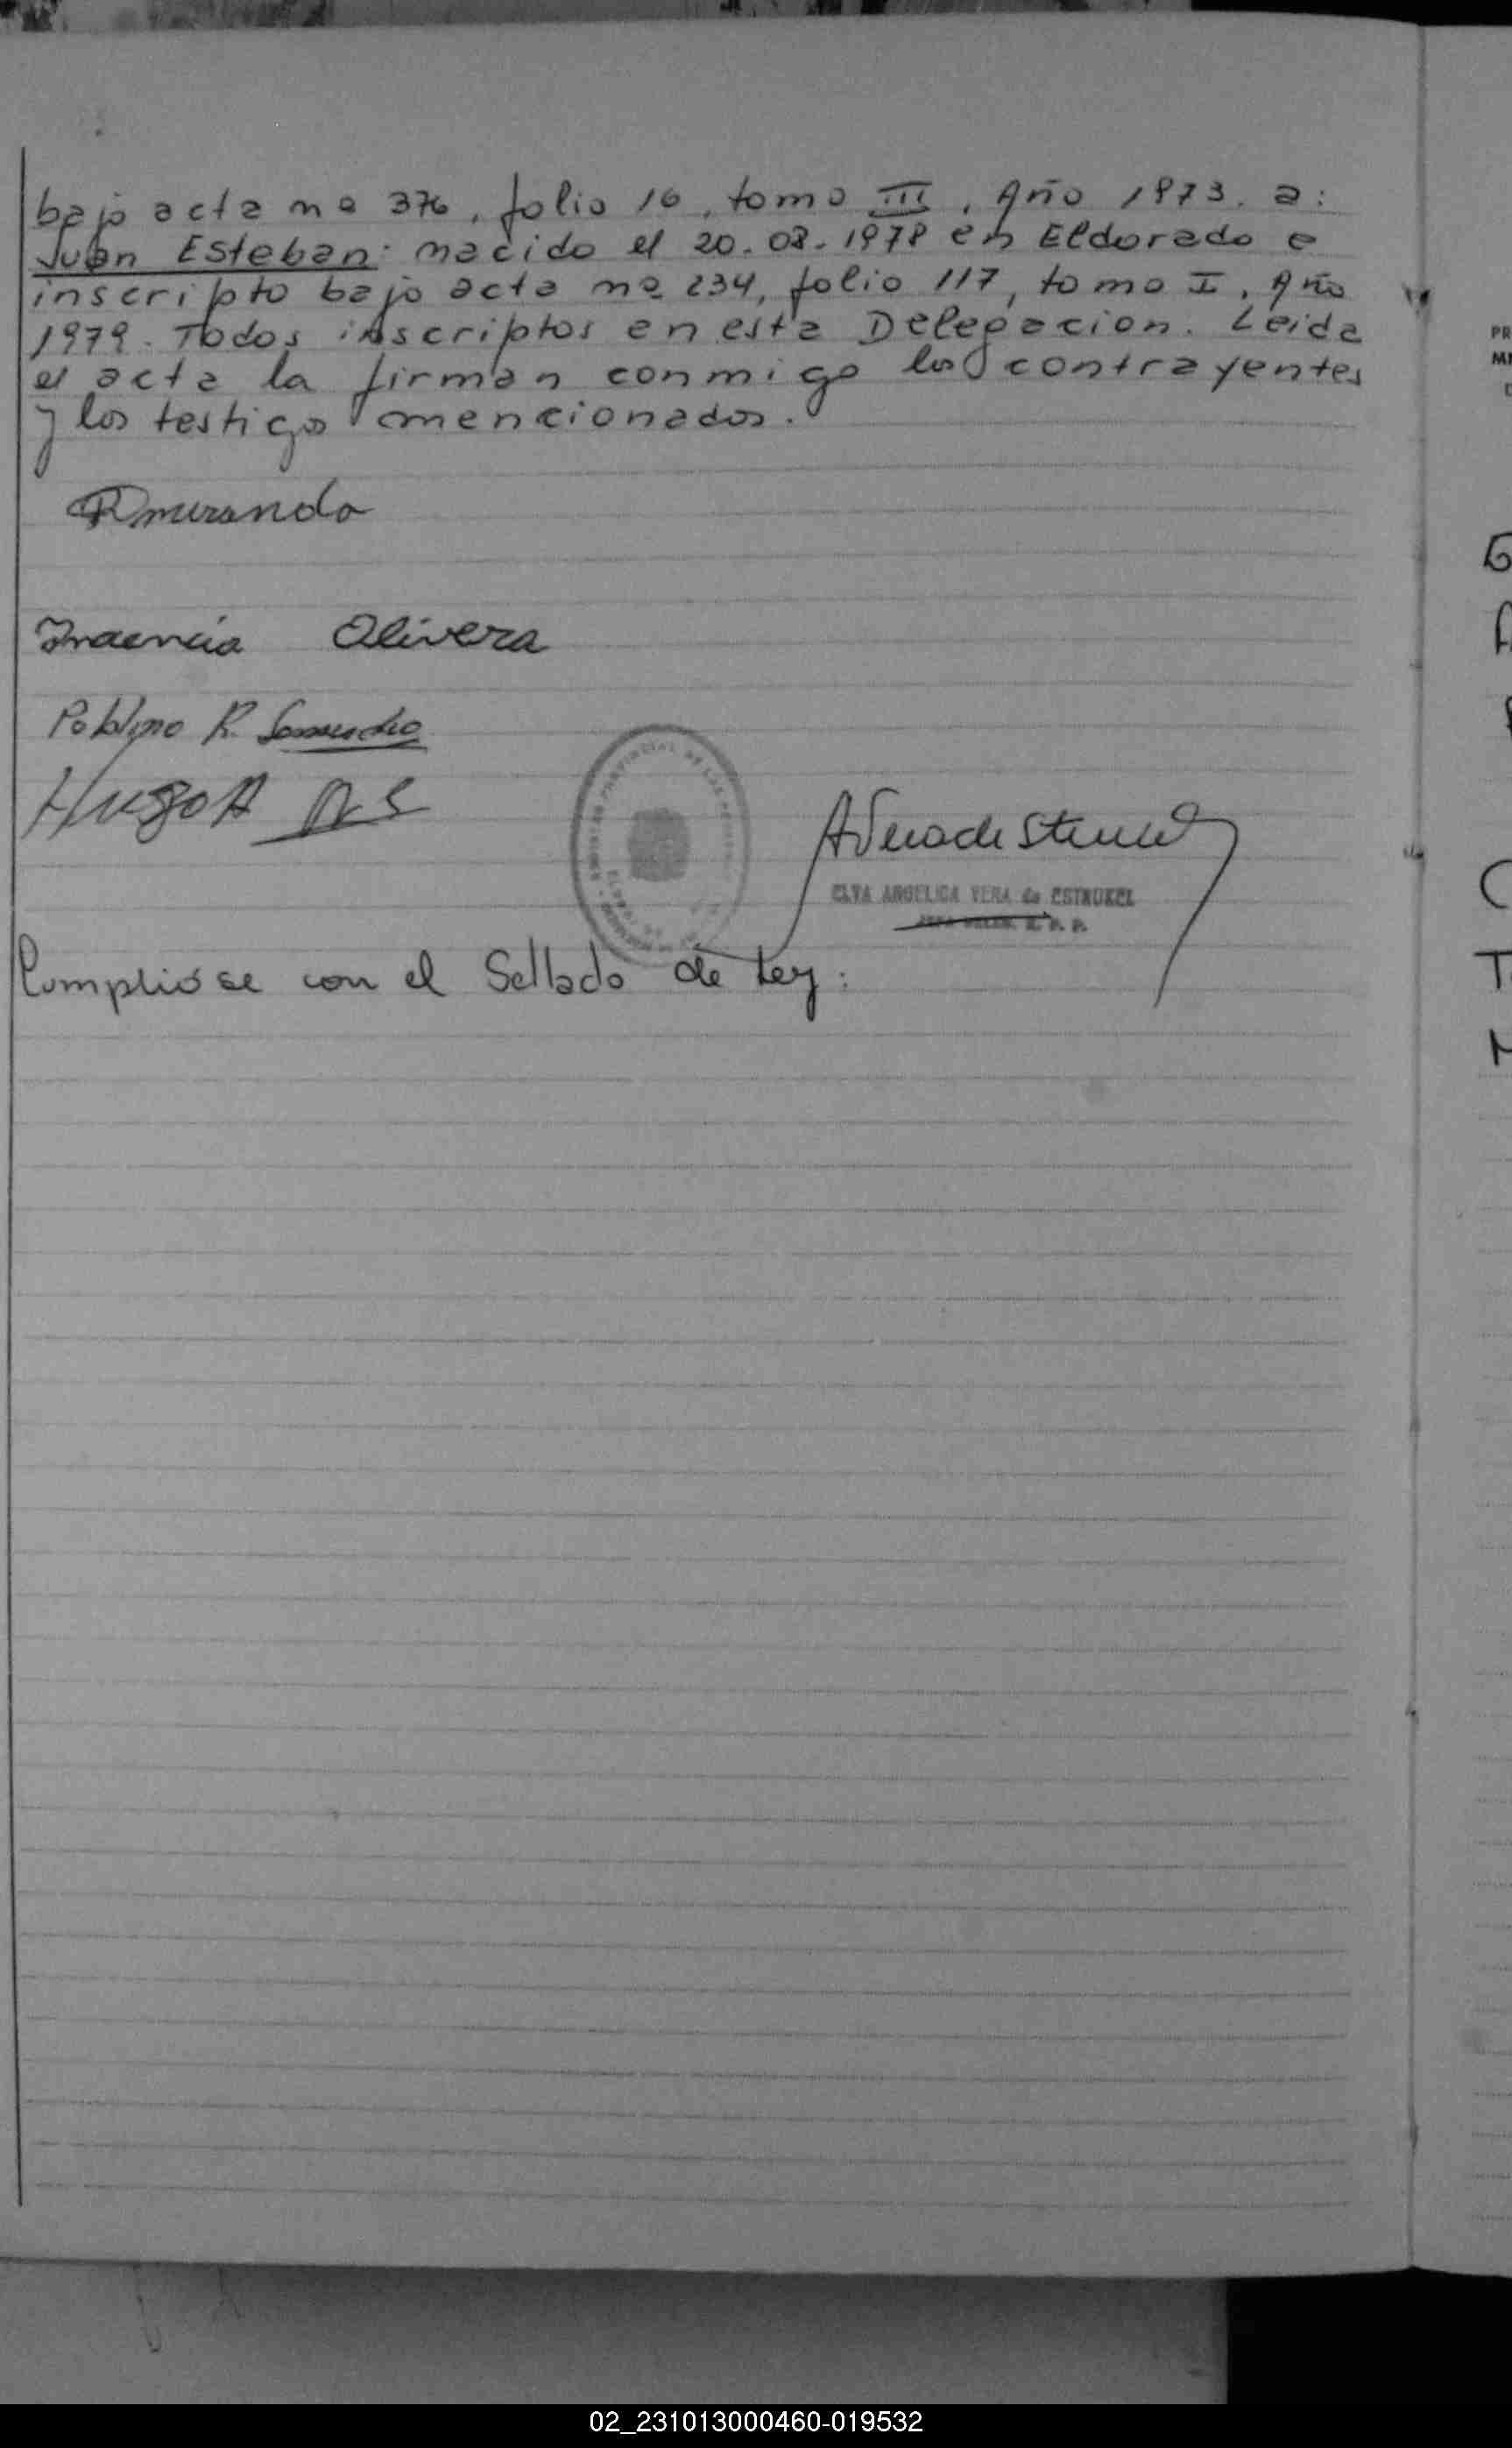 bajo acta nº 376, folio 16, tomo III, Año 1973. a:
Juan Esteban: nacido el 20-08-1978 en Eldorado e
inscripto bajo acta nº 234, folio 117, tomo I, Año
1979. Todos inscriptos en esta Delegacion. Leida
el acta la firman conmigo los contrayentes
y los testigos mencionados.
RMiranda
Olivera
R.
Hugo A
AVera de
ELVA ANGELICA VERA de ESTRUKEL
Cumplióse con el Sellado de Ley:
02_231013000460-019532